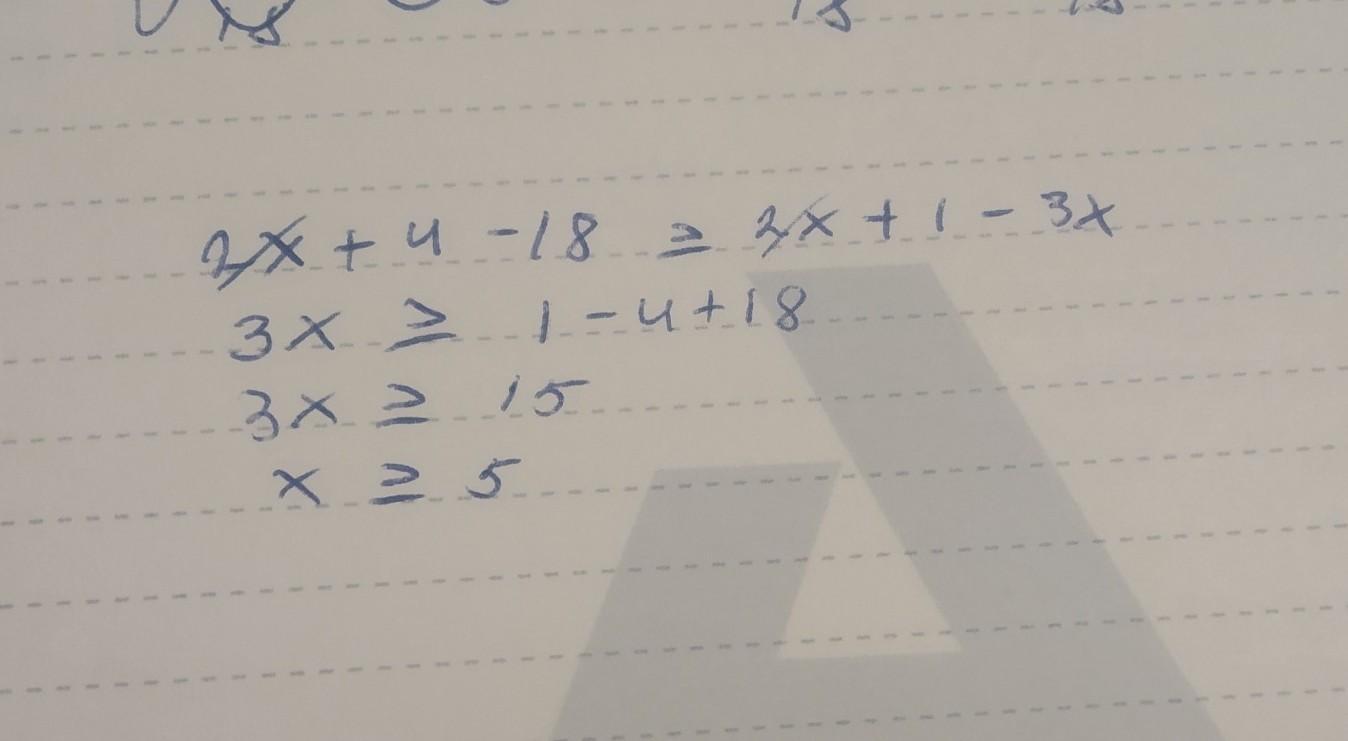 18 18 18
2x + 4 - 18 ≥ 2x + 1 - 3x
3x ≥ 1 - 4 + 18
3x ≥ 15
x ≥ 5